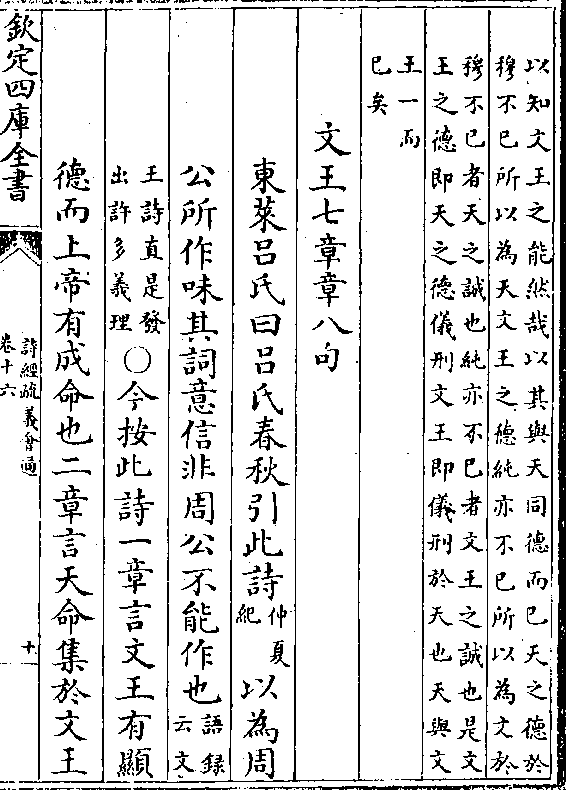 以知文王之能然哉以其與天同德而已天之德於
穆不已所以為天文王之德純亦不已所以為文於
穆不已者天之誠也純亦不已者文王之誠也是文
王之德即天之德儀刑文王即儀刑於天也天與文
王一而
已矣
文王七章章八句
東萊呂氏曰呂氏春秋引此詩仲夏紀以為周
公所作味其詞意信非周公不能作也語録云文
王詩直是發出許多義理〇今按此詩一章言文王有顯
德而上帝有成命也二章言天命集於文王
欽定四庫全書
詩經疏義會通
卷十六
十